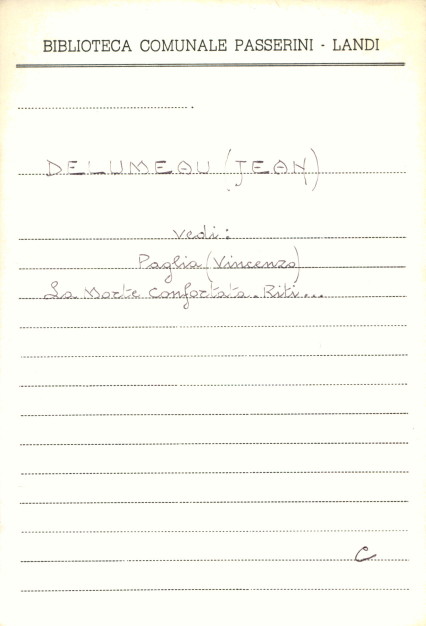 BIBLIOTECA COMUNALE PASSERINI - LANDI
DELUMEAU (JEAN)
vedi:
Paglia (Vincenzo)
La Morte confortata. Riti...
C